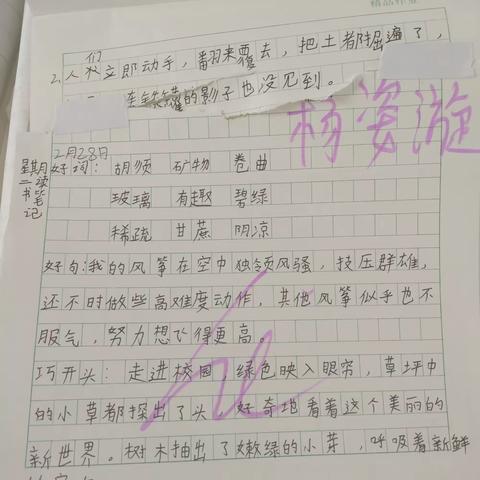 精品作业
们
2.人人立即动手，翻来覆去，把土都掘遍了，
连铁罐的影子也没见到。
杨姿漩
2月28日
星期二读书笔记
好词：胡须 矿物 卷曲
玻璃 有趣 碧绿
稀疏 甘蔗 阴凉
好句：我的风筝在空中独领风骚，技压群雄，
还不时做些高难度动作，其他风筝似乎也不
服气，努力想飞得更高。
巧开头：走进校园，绿色映入眼帘，草坪中
的小草都探出了头，好奇地看着这个美丽的
新世界。树木抽出了嫩绿的小芽，呼吸着新鲜